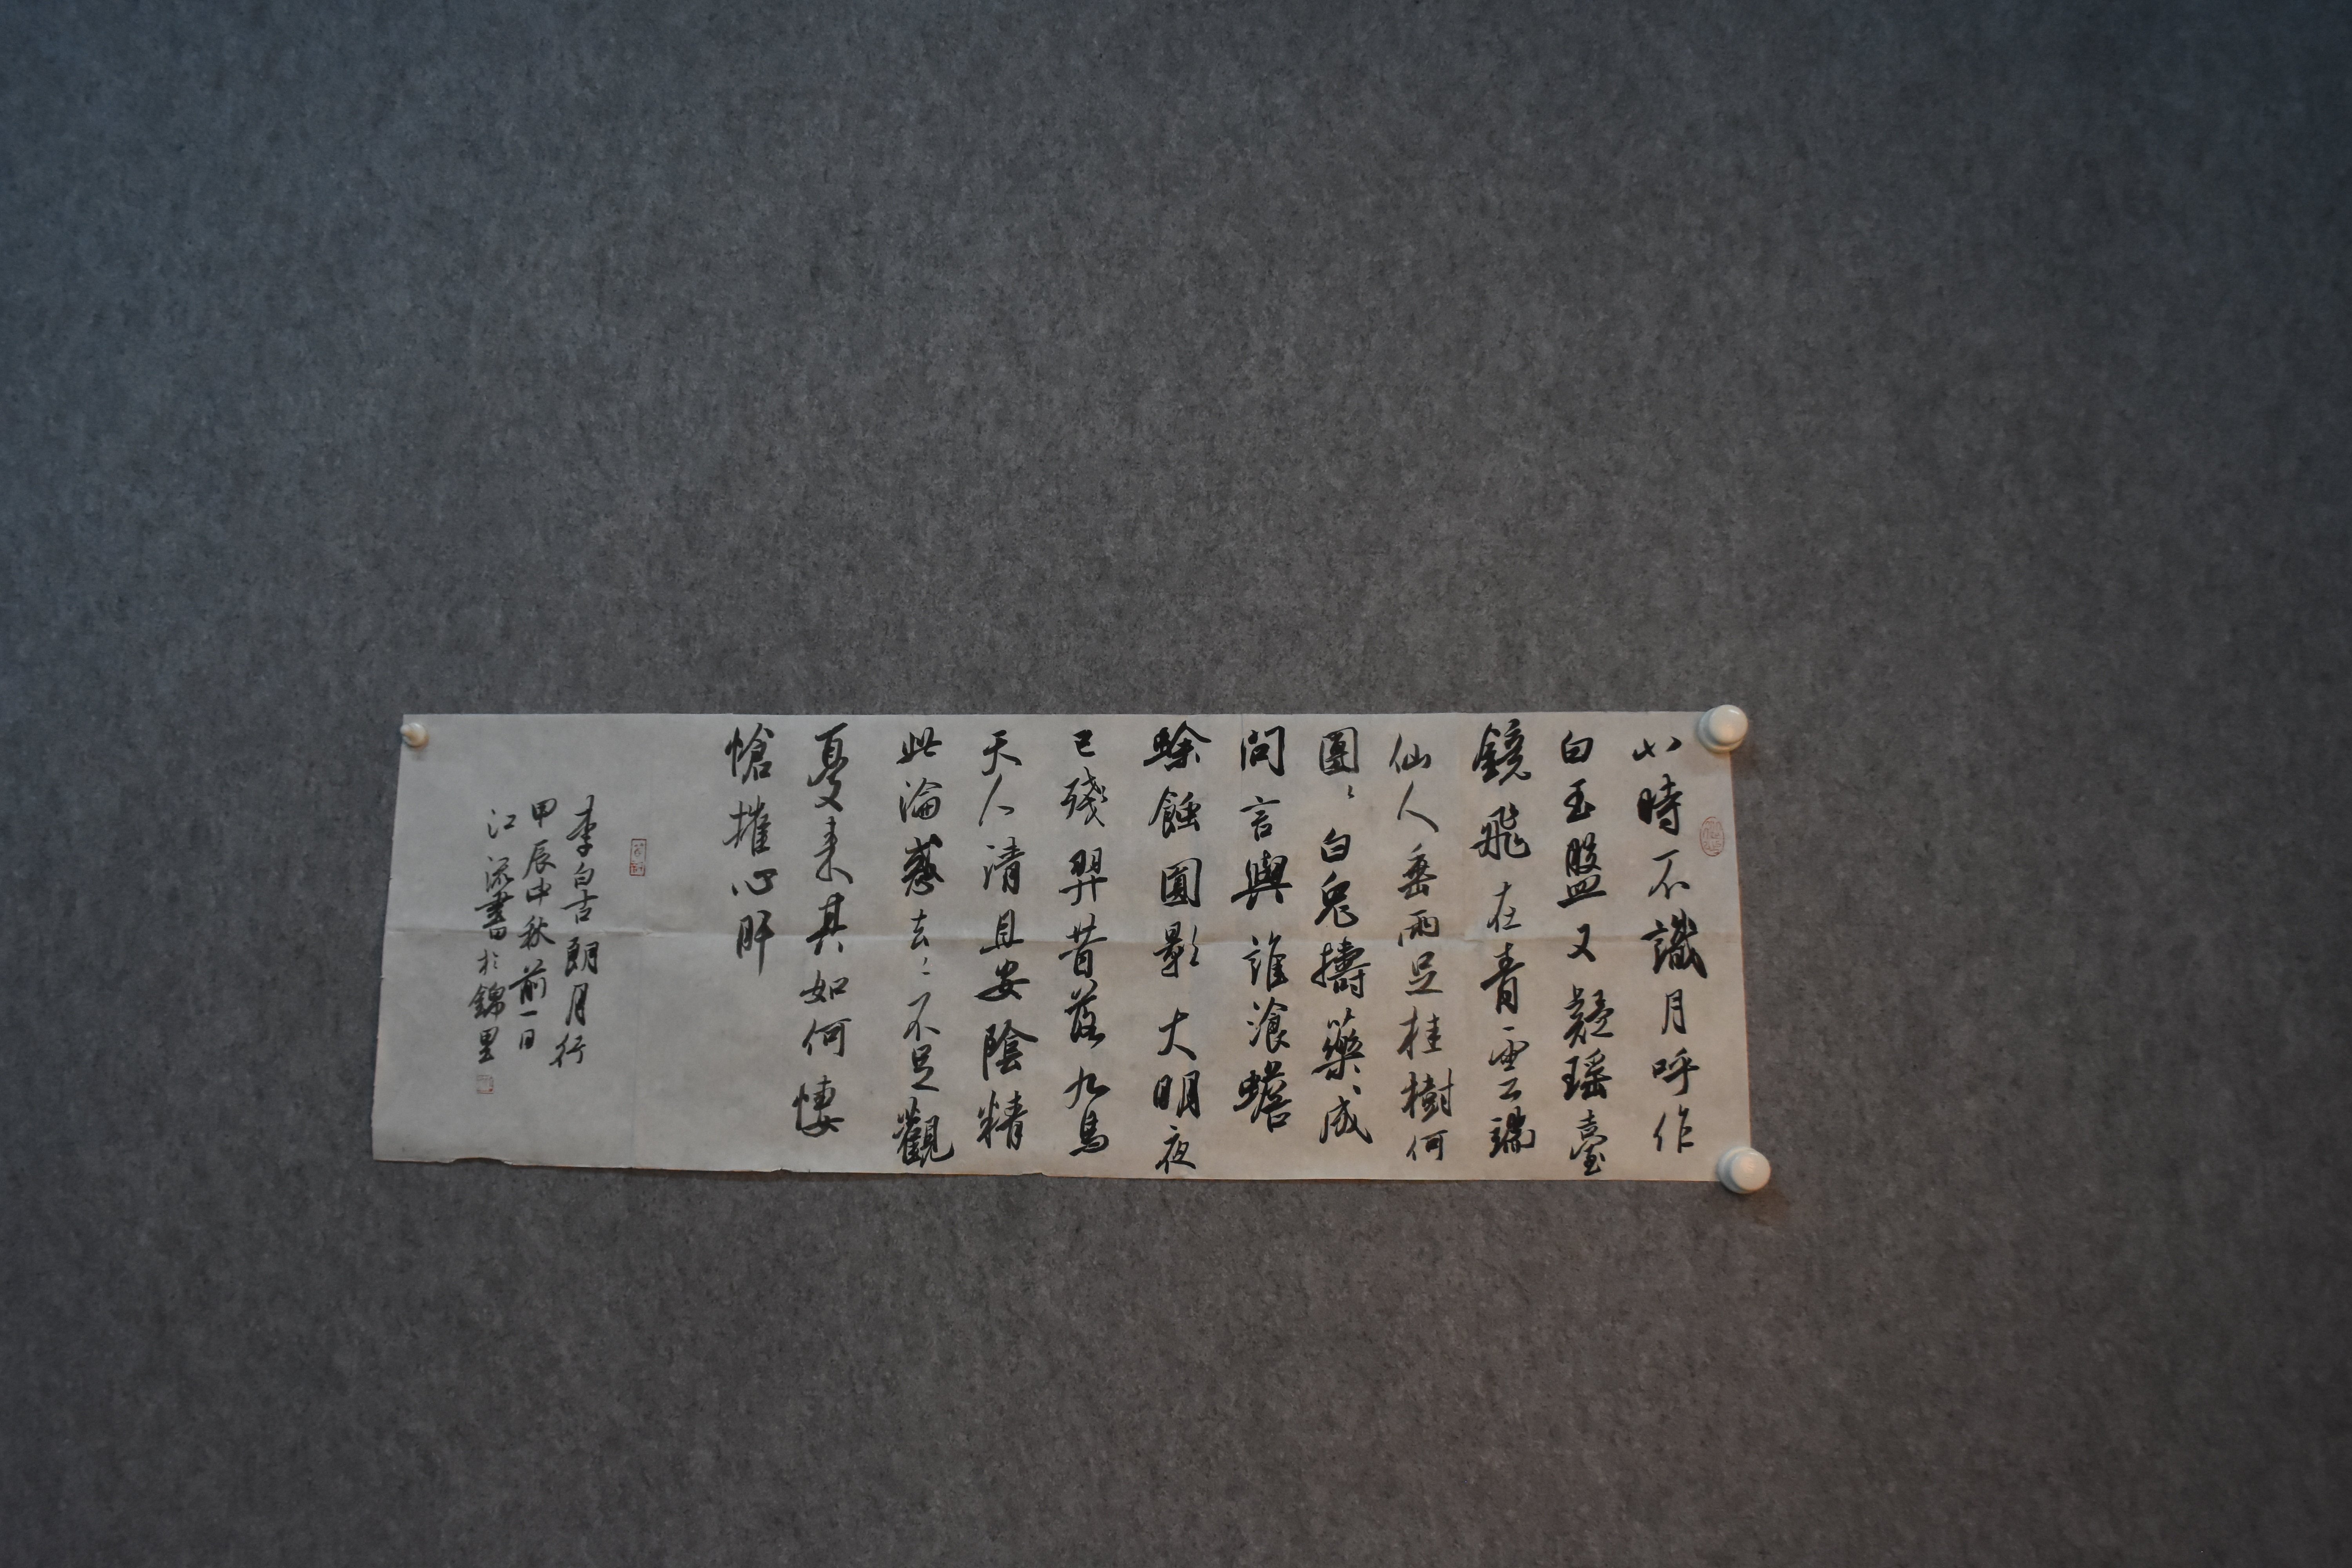 小時不識月呼作
白玉盤又疑瑶臺
鏡飛在青雲端
仙人垂兩足桂樹何
團〻白兔擣藥成
問言與誰飡蟾
蜍蝕圓影大明夜
已殘羿昔落九烏
天人清且安陰精
此淪惑去〻不足觀
憂來其如何悽
愴摧心肝
李白古朗月行
甲辰中秋前一日
江流書於錦里